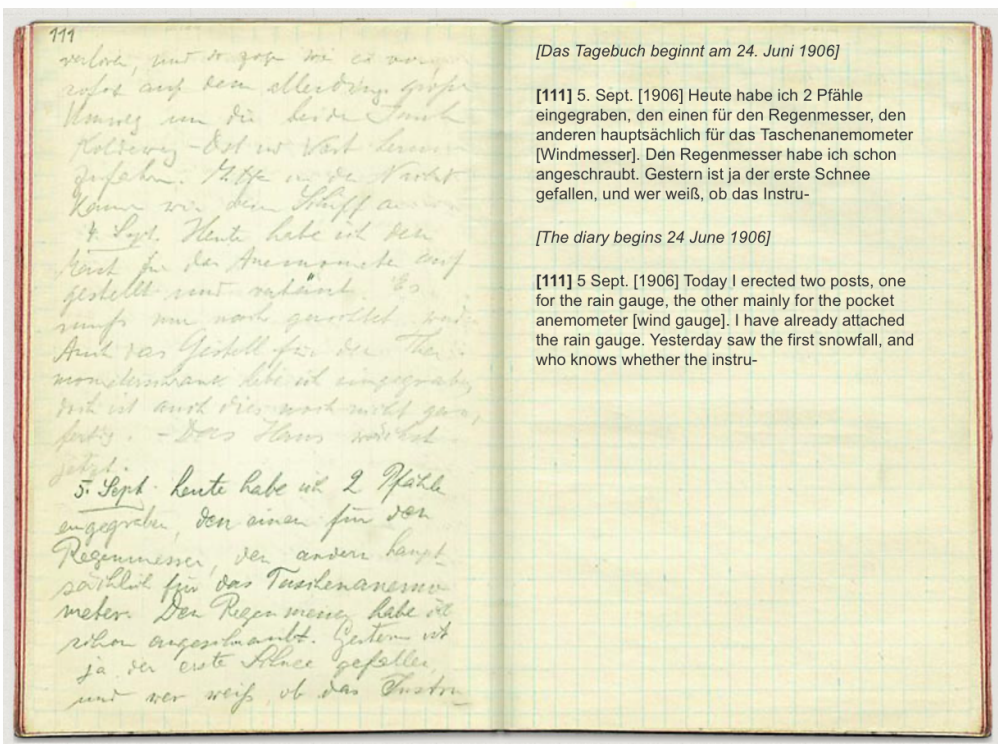 111
verloren, und so zogen wir es vor,
sofort auf dem allerdings großen
Umweg um die beiden Inseln
Koldewey-Ost und West herum
zu fahren. Mitten in der Nacht
kamen wir beim Schiff an.
4. Sept. Heute habe ich den
Mast für das Anemometer auf
gestellt und vertäut. Es
muß nur noch werden
Auch das Gestell für den Ther-
mometerschrank habe ich eingegraben,
doch ist auch dies noch nicht ganz
fertig. – Das Haus wächst
jetzt.
5. Sept. heute habe ich 2 Pfähle
eingegraben, den einen für den
Regenmesser, den andern haupt-
sächlich für das Taschenanemo-
meter. Den Regenmesser habe ich
schon angeschraubt. Gestern ist
ja der erste Schnee gefallen,
und wer weiß, ob das Instru-
[Das Tagebuch beginnt am 24. Juni 1906]
[111] 5. Sept. [1906] Heute habe ich 2 Pfähle
eingegraben, den einen für den Regenmesser, den
anderen hauptsächlich für das Taschenanemometer
[Windmesser]. Den Regenmesser habe ich schon
angeschraubt. Gestern ist ja der erste Schnee
gefallen, und wer weiß, ob das Instru-
[The diary begins 24 June 1906]
[111] 5 Sept. [1906] Today I erected two posts, one
for the rain gauge, the other mainly for the pocket
anemometer [wind gauge]. I have already attached
the rain gauge. Yesterday saw the first snowfall, and
who knows whether the instru-